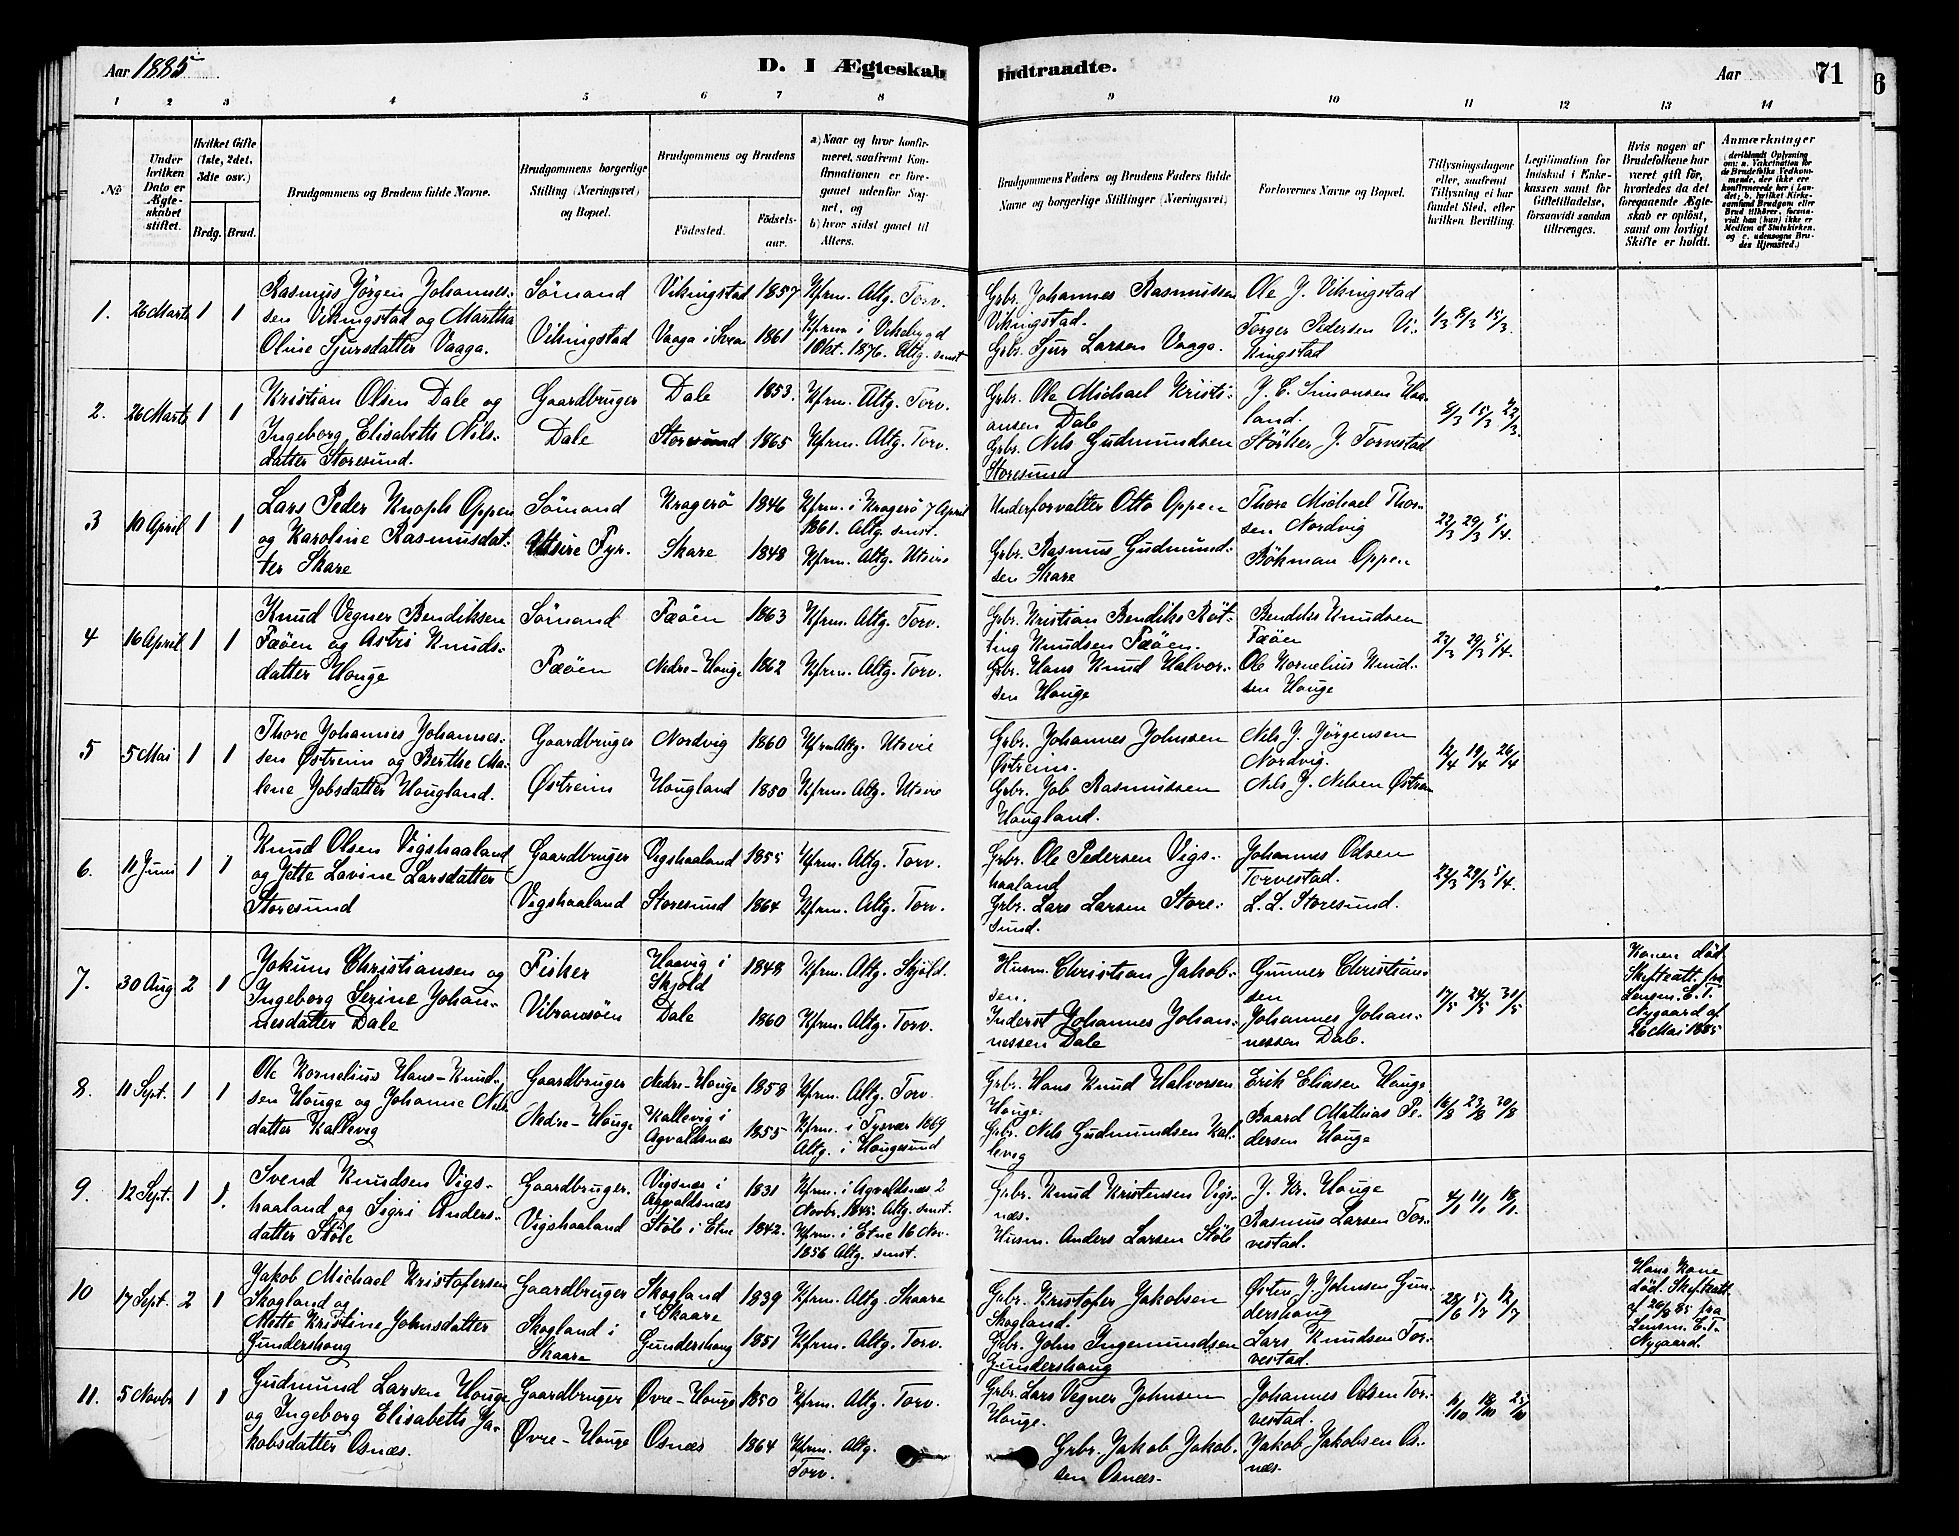 Aar 1885
D. I Ægteskab Indtraadte.
Aar
71
6
1 2 3 4 5 6 7 8 9 10 11 12 13 14
No
Under hvilken Dato er Ægteskabet stiftet.
Hvilket Gifte (1ste, 2det, 3die osv.)
Brdg. Brud.
Brudgommens og Brudens fulde Navne.
Brudgommens borgerlige Stilling (Næringsvei) og Bopæl.
Brudgommens og Brudens
Fødested.
Fødselsaar.
a) Naar og hvor konfirmeret, saafremt Konfirmationen er foregaaet udenfor Sognet, og
b) hvor sidst gaaet til Alters.
Brudgommens Faders og Brudens Faders fulde Navne og borgerlige Stillinger (Næringsvei)
Forlovernes Navne og Bopæl.
Tillysningsdagene eller, saafremt Tillysning ei har fundet Sted, efter hvilken Bevilling.
Legitimation for Indskud i Enkekassen samt for Giftetilladelse, forsaavidt saadan tiltrænges.
Hvis nogen af Brudefolkene har været gift før, hvorledes da det foregaaende Ægteskab er opløst, samt om lovligt Skifte er holdt.
Anmærkninger
1. 26 Marts 1 1
Rasmus Jörgen Johannes-
sen Vikingstad og Martha
Oline Sjursdatter Vaaga.
Sömand
Vikingstad
Vikingstad 1857
Vaaga i Sveen 1861
Kfrm. Altg. Torv.
Kfrm i Vikebygd
1 Okt. 1876. Altg. smst
Grbr. Johannes Rasmussen
Vikingstad.
Grbr. Sjur Larsen Vaage.
Ole J. Vikingstad
Torger Pedersen Vi-
kingstad
1/3 8/3 15/3.
2. 26 Marts 1 1
Kristian Olsen Dale og
Ingeborg Elisabeth Nils-
datter Storesund.
Gaardbruger
Dale
Dale 1853.
Storesund 1865
Kfrm. Altg. Torv.
Kfrm. Altg. Torv.
Grbr. Ole Michael Kristi-
ansen Dale
Grbr. Nils Gudmundsen
Storesund
J. E. Simonsen Haa-
land.
Störker J. Torvestad
8/3 15/3 22/3.
3 10 April 1 1
Lars Peder Knoph Oppen
og Karoline Rasmusdat-
ter Skare
Sömand
Utsire Fyr.
Kragerö 1846
Skare 1848
Kfrm. i Kragerö 7 April
1861. Altg. smst.
Kfrm. Altg. Utsire
Underforvalter Otto Oppen
Grbr. Rasmus Gudmund-
sen Skare
Thore Michael Thor-
sen Nordvig
Bökman Oppen
22/3 29/3 5/4.
4 16 April 1 1
Knud Vegner Bendiksen
Fæöen og Astri Knuds-
datter Houge
Sömand
Fæöen
Fæöen 1863
Nedre-Houge 1862
Kfrm. Altg. Torv.
Kfrm. Altg. Torv.
Grbr. Kristian Bendiks Röt-
ting Knudsen Fæöen.
Grbr. Hans Knud Halvor-
sen Houge
Bendiks Knudsen
Fæöen
Ole Kornelius Knud-
sen Houge
22/3 29/3 5/4.
5 5 Mai 1 1
Thore Johannes Johannes-
sen Østreim og Berthe Ma-
lene Jobsdatter Hougland.
Gaardbruger
Østreim
Nordvig 1860
Hougland 1850
Kfrm Altg. Utsire
Kfrm. Altg. Utsire
Grbr. Johannes Johnsen
Østreim.
Grbr. Job Rasmussen
Hougland.
Nils J. Jörgensen
Nordvig.
Nils J. Nilsen Østreim
12/4 19/4 26/4
6. 11 Juni 1 1
Knud Olsen Vigshaaland
og Jette Lovine Larsdatter
Storesund
Gaardbruger
Vigshaaland
Vigshaaland 1855
Storesund 1864
Kfrm. Altg. Torv.
Kfrm. Altg. Torv.
Grbr. Ole Pedersen Vigs-
haaland
Grbr. Lars Larsen Store-
sund.
Johannes Odsen
Torvestad.
L. L. Storesund.
22/3 29/3 5/4.
7. 30 Aug 2 1
Jokum Christiansen og
Ingeborg Serine Johan-
nesdatter Dale
Fisker
Vibransöen
Haavig i
Skjold 1848
Dale 1860
Kfrm. Altg. Skjold.
Kfrm. Altg. Torv.
Husm. Christian Jakob-
sen.
Inderst Johannes Johan-
nessen Dale
Gunner Christian-
sen
Johannes Johan-
nessen Dale.
17/5 24/5 31/5
Konen död.
Skifteatt. fra
Lensm. E. T.
Nygaard af
26 Mai 1885
8. 11 Sept. 1 1
Ole Kornelius Hans-Knud-
sen Houge og Johanne Nils-
datter Kallevig
Gaardbruger
Nedre-Houge
Nedre-Houge 1858
Kallevig i
Agvaldsnæs 1855
Kfrm. Altg. Torv.
Kfrm. i Tysvær 1869
Altg. i Hougesund
Grbr. Hans Knud Halvorsen
Houge.
Grbr. Nils Gudmundsen Kal-
levig
Erik Eliasen Houge
Baard Mathias Pe-
dersen Houge
16/8 23/8 30/8
9. 12 Sept. 1 1.
Svend Knudsen Vigs-
haaland og Sigri Anders-
datter Støle
Gaardbruger.
Vigshaaland
Vigsnæs i
Agvaldsnæs 1831
Støle i Etne 1842.
Kfrm. i Agvaldsnæs 2
Novbr. 1845. Altg. smst.
Kfrm. i Etne 16 Nov.
1856 Altg. smst.
Grbr. Knud Kristensen Vigs-
næs.
Husm. Anders Larsen Støle
J. Kr. Houge
Rasmus Larsen Tor-
vestad.
4/1 11/1 18/1.
10 17 Sept. 2 1
Jakob Michael Kristofersen
Skogland og
Mette Kristine Johnsdatter
Gunderhoug
Gaardbruger
Skogland i
Skaare
Skogland
i Skaare 1839
Gundershoug 1851
Kfrm. Altg. Skaare
Kfrm. Altg. Torv.
Grbr. Kristofer Jakobsen
Skogland.
Grbr. John Ingemundsen
Gundershoug
J. Johnsen Gun-
dershoug
Lars Knudsen Tor-
vestad.
28/6 5/7 12/7
Hans Kone
död. Skifteatt.
fra
Lensm. E. T.
Nygaard.
11. 5 Novbr 1 1
Gudmund Larsen Houge
og Ingeborg Elisabeth Ja-
kobsdatter Osnæs.
Gaardbruger
Øvre-Houge
Øvre-Houge 1850
Osnæs 1864
Kfrm. Altg. Torv.
Kfrm. Altg.
Torv.
Grbr. Lars Vegner Johnsen
Houge.
Grbr. Jakob Jakob-
sen Osnæs.
Johannes Odsen Tor-
vestad.
Jakob Jakobsen Os-
næs.
11/10 18/10 25/10